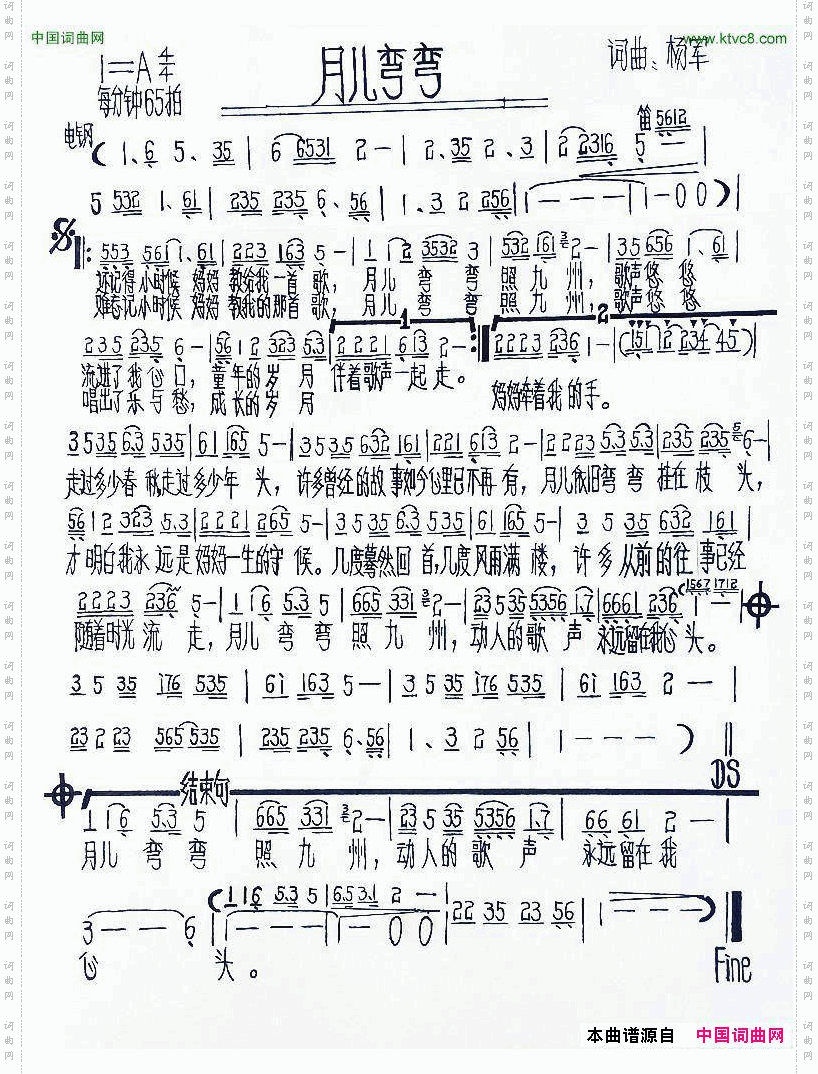 中国词曲网
www.ktvc8.com
1=A 4/4
月儿弯弯
词曲：杨军
每分钟65拍
电钢
笛 5612
( 1. 6 5. 35 | 6 6531 2 – | 2. 35 2. 3 | 2 2316 5 – |
5 532 1. 61 | 235 235 6. 56 | 1. 3 2 256 | 1 – – – | 1 – 0 0 ) |
553 5611. 61 | 223 163 5 – | 1 1 2 3532 3 | 532 161 2 – | 35 656 1. 61 |
还记得小时候 妈妈 教给我一首 歌， 月儿 弯 弯 照 九 州， 歌声悠 悠
难忘记小时候 妈妈 教我的那首 歌， 月儿 弯 弯 照 九 州， 歌声悠 悠
1 2
235 235 6 – | 5612 323 5.3 | 2221 613 2 – :| 2223 236 1 – | (151 12 234 45) |
流进了我心口， 童年的岁 月 伴着歌声一起 走。 妈妈牵着我 的手。
唱出了乐与愁， 成长的岁 月
3535 6.3 535 | 61 165 5 – | 3535 632 161 | 221 613 2 – | 2223 5.3 5.3 | 235 235 6 – |
走过多少春 秋，走过多少年 头， 许多曾经的故 事如今心里已不再 有， 月儿依旧弯 弯 挂在 枝 头，
5612 323 5.3 | 2221 265 5 – | 3535 6.3 535 | 61 165 5 – | 3 5 35 632 161 |
才明白我永 远是妈妈一生的守 候。几度蓦然回 首，几度风雨满 楼， 许 多 从前的往 事已经
1567 1712
2223 236 5 – | 116 5.3 5 | 665 331 2 – | 23 535 5356 1.7 | 6661 236 1 – |
随着时光 流 走， 月儿 弯 弯 照 九 州， 动人的歌 声 永远留在我心 头。
3 5 35 176 535 | 61 163 5 – | 3 5 35 176 535 | 61 163 2 – |
23 2 23 565 535 | 235 235 6. 56 | 1. 3 2 56 | 1 – – – ) ‖
DS
结束句
1 16 5.3 5 | 665 331 2 – | 23 5 35 5356 1.7 | 66 61 2 – |
月儿 弯 弯 照 九 州， 动人的 歌 声 永远留在 我
( 116 5.3 5 | 6.53.1 2 – |
3 – – 6 | 1 – – – | 1 – 0 0 | 22 35 23 56 | 1 – – – ) ‖
心 头。
Fine
本曲谱源自 中国词曲网
词曲网